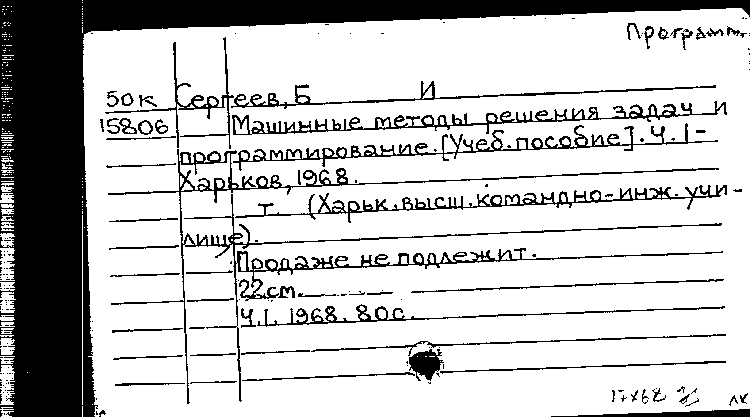 Программ.
50к Сергеев, Б И
15806 Машинные методы решения задач и
программирование. [Учеб. пособие]. Ч. 1-
Харьков, 1968.
т. (Харьк. высш. командно-инж. учи-
лище).
Продаже не подлежит.
22 см.
Ч. I. 1968. 80 с.